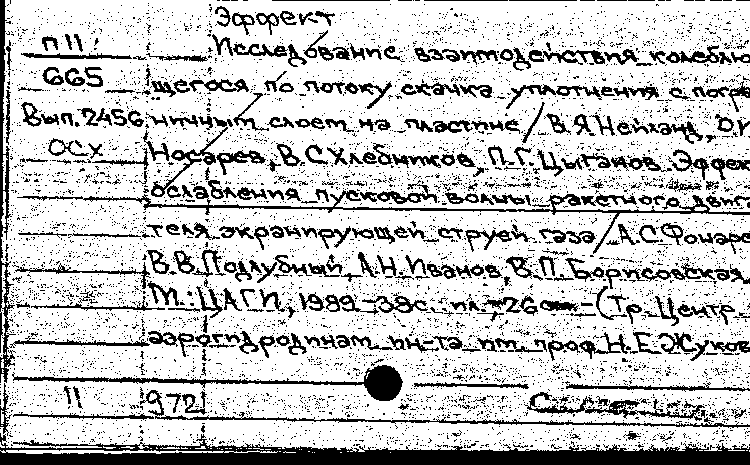 Эффект
П II
Исследование взаимодействия колеблю
665
щегося по потоку скачка уплотнения с погра
Вып. 2456
ничным слоем на пластине / В.Я Нейланд,
ОСХ
Носарев, В.С Хлебников, П.Г. Цыганов. Эффек
ослабления пусковой волны ракетного двига
теля экранирующей струей газа / А.С. Фонаре
В.В. Подлубный, А.Н. Иванов, В.П. Борисовская
М.: ЦАГИ, 1989 - 38с. ил.; 26 - (Тр. Центр.
аэрогидродинам ин-та им. проф Н.Е Жуков
II 972